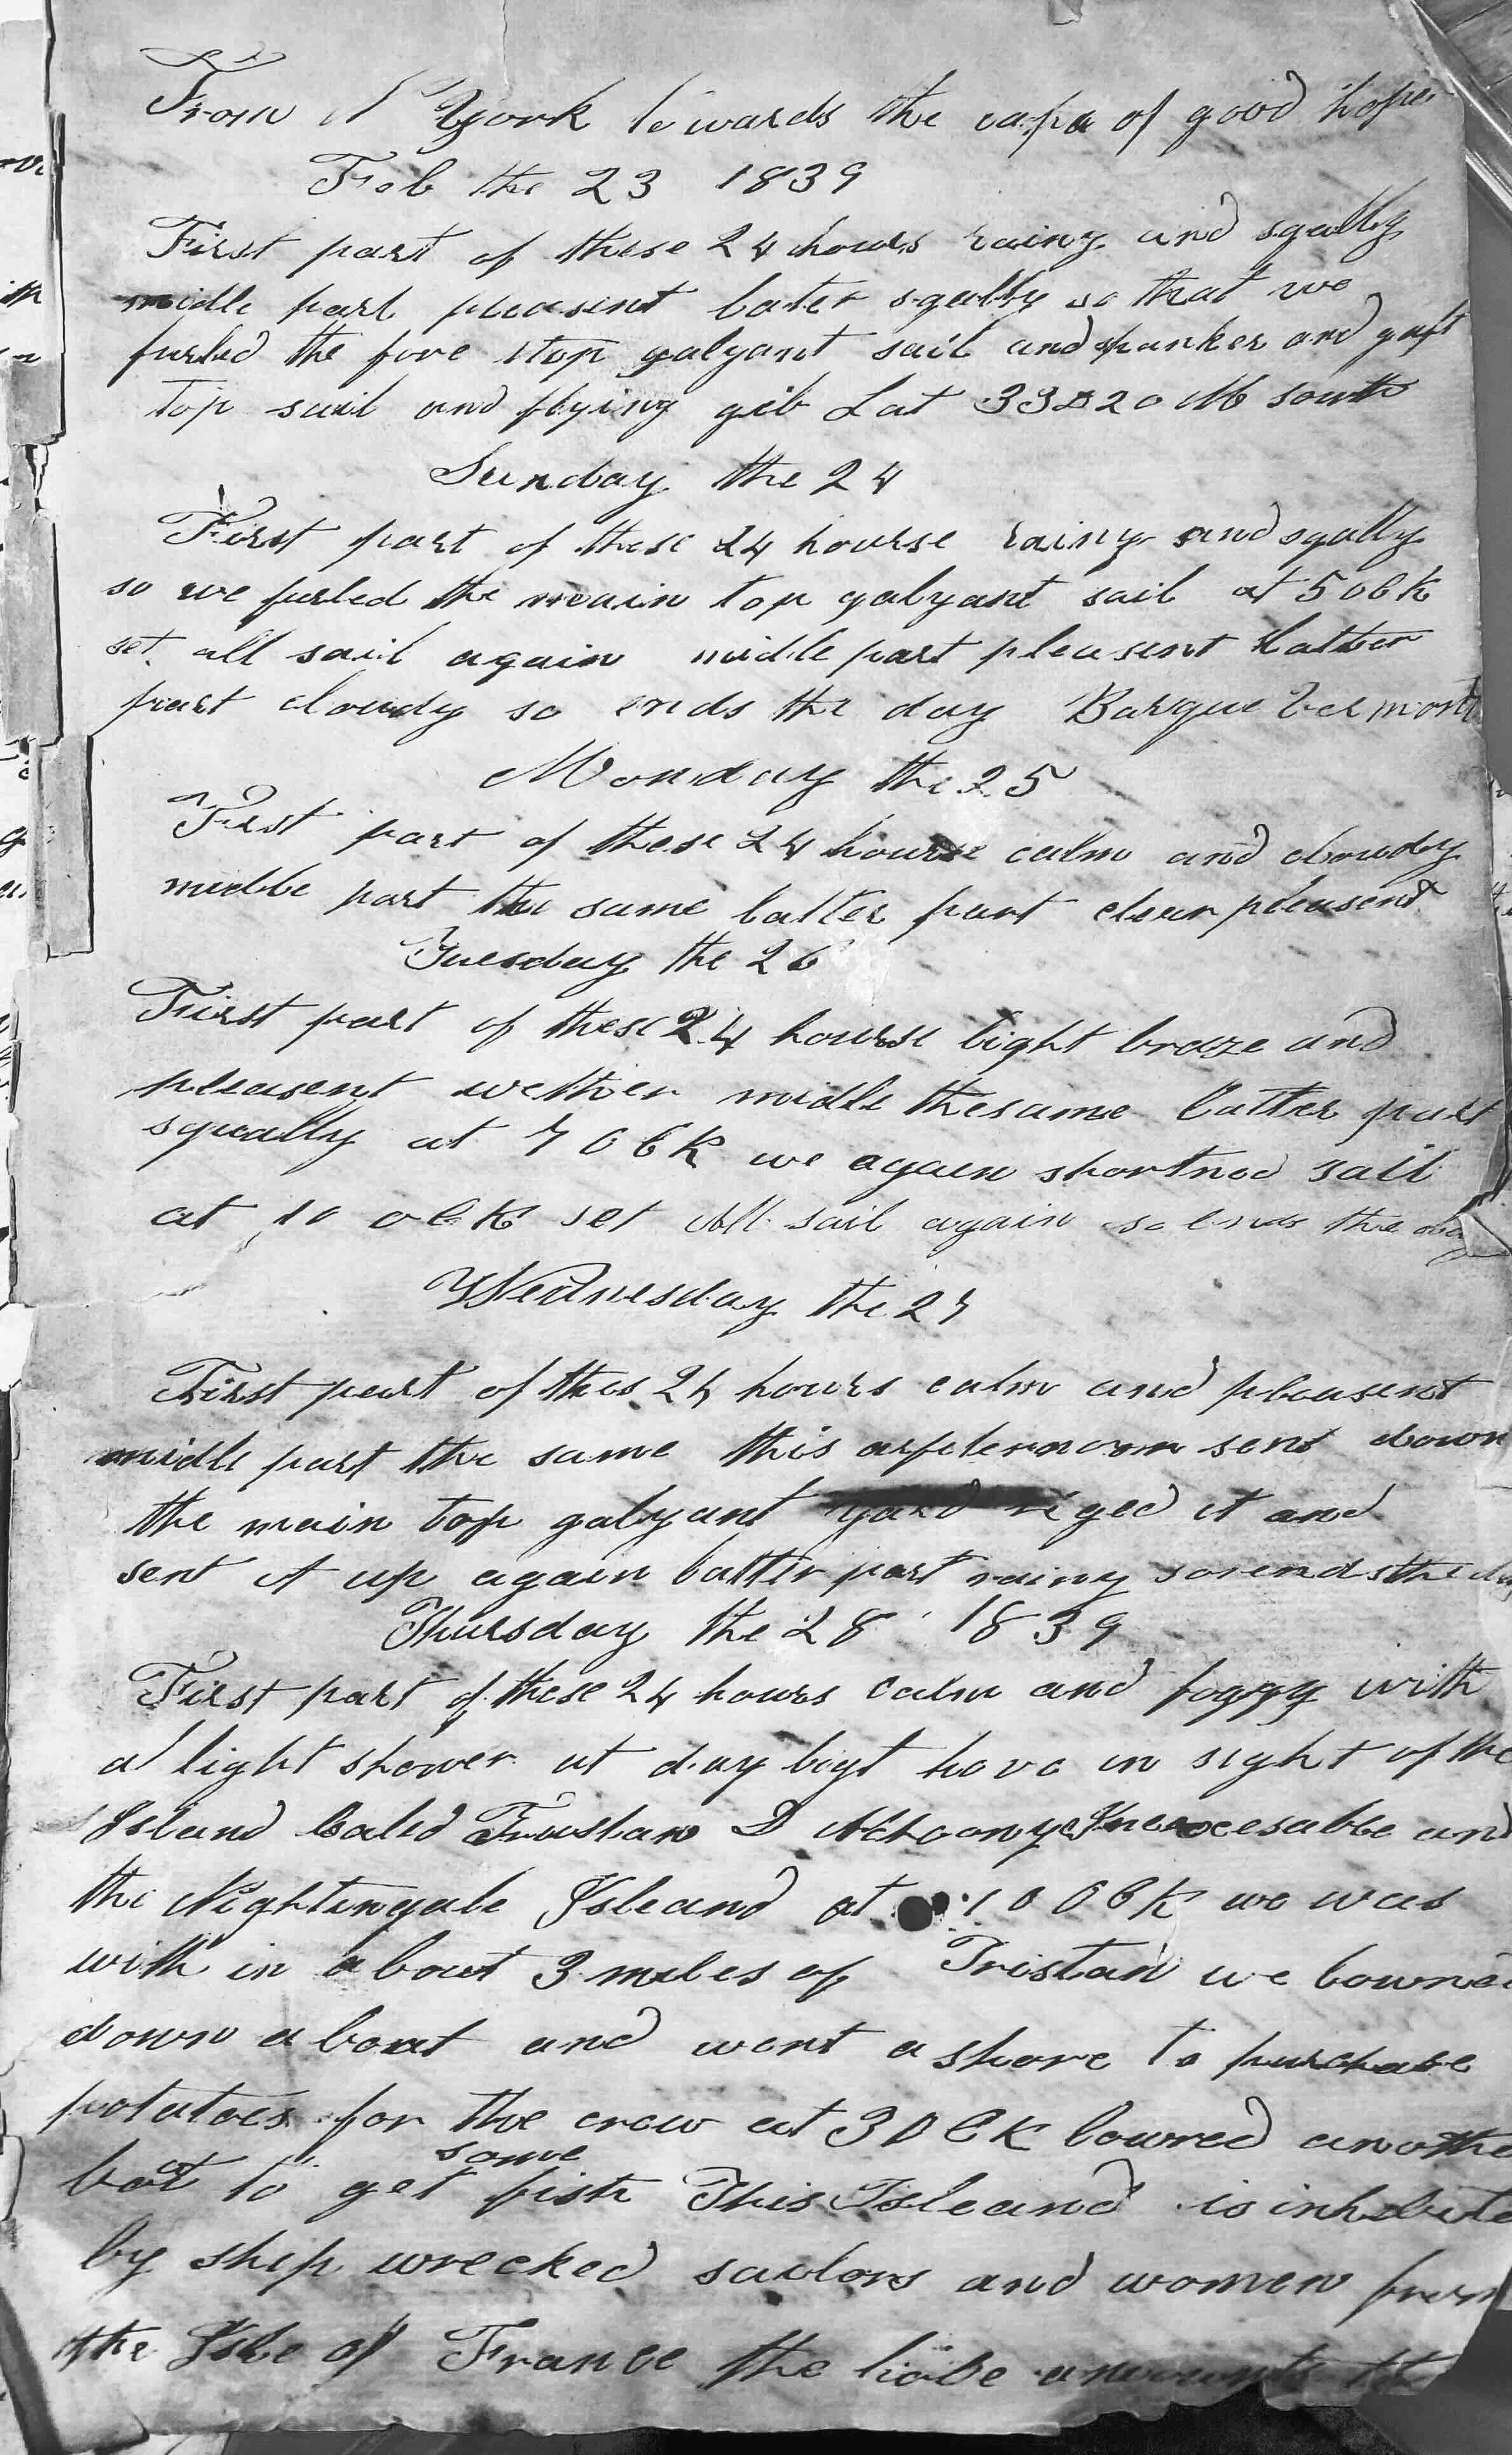 From N York towards the cape of good hope
Feb the 23 1839
First part of these 24 hours rainy and sqally
midle part pleasent later sqally so that we
furled the fore top galyant sail and spanker and gaft
top sail and flying gib Lat 33D 20 M south
Sunday the 24
First part of these 24 hourse rainy and sqally
so we furled the main top galyant sail at 5 oclk
set all sail again midle part pleasent Latter
part cloudy so ends the day Barque Vermont
Monday the 25
First part of these 24 hourse calm and cloudy
midle part the same latter part clear pleasent
Tuesday the 26
First part of these 24 hourse light braze and
pleasent wether midle the same latter part
squally at 7 oclk we again shortned sail
at 10 oclk set all sail again so ends the day
Wednesday the 27
First part of thes 24 hours calm and pleasent
midle part the same this afpternoon sent down
the main top galyant yard riged it and
sent it up again latter part rainy so ends the day
Thursday the 28 1839
First part of these 24 hours calm and foggy with
a light shower at day ligt hove in sight of the
Island Caled Trustan D Inaccesable and
the Nightingale Isleand at 10 oclk we was
with in about 3 miles of Tristan we
down a boat and went a shore to purchase
potatoes for the crew at 3 oclk lowred anothe
some
bot to get fish This Isleand is inhabite
by ship wrecked sailors and women from
the Isle of France the